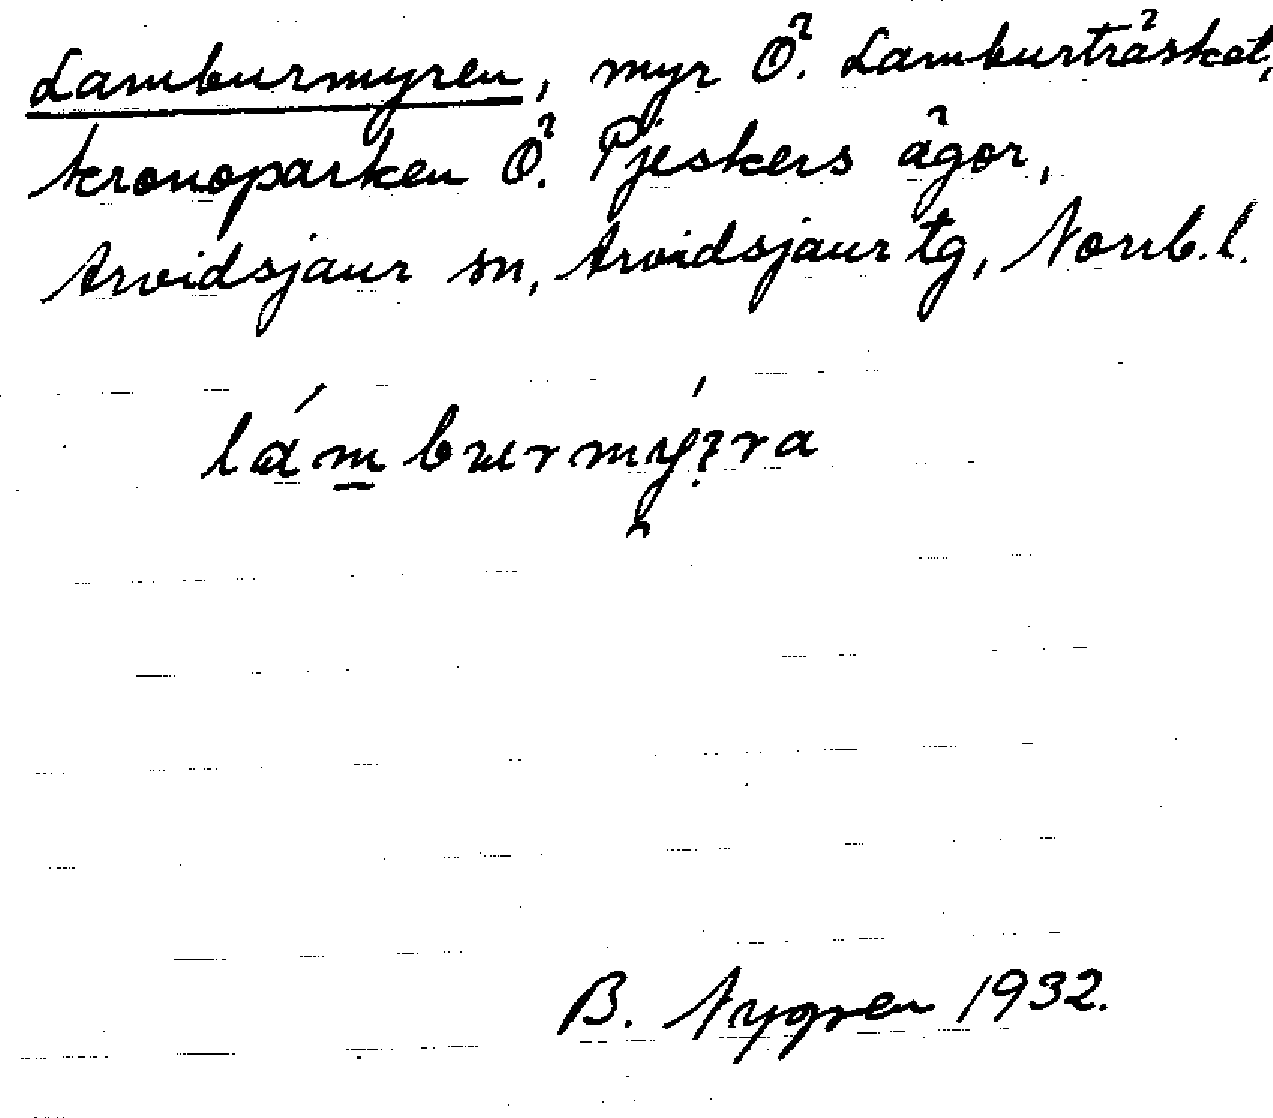 Lamburmyren, myr Ö. Lamburträsket,
kronoparken Ö. Pjeskers ägor,
Arvidsjaur sn, Arvidsjaur tg, Norrb.l.
B. Nygren 1932.